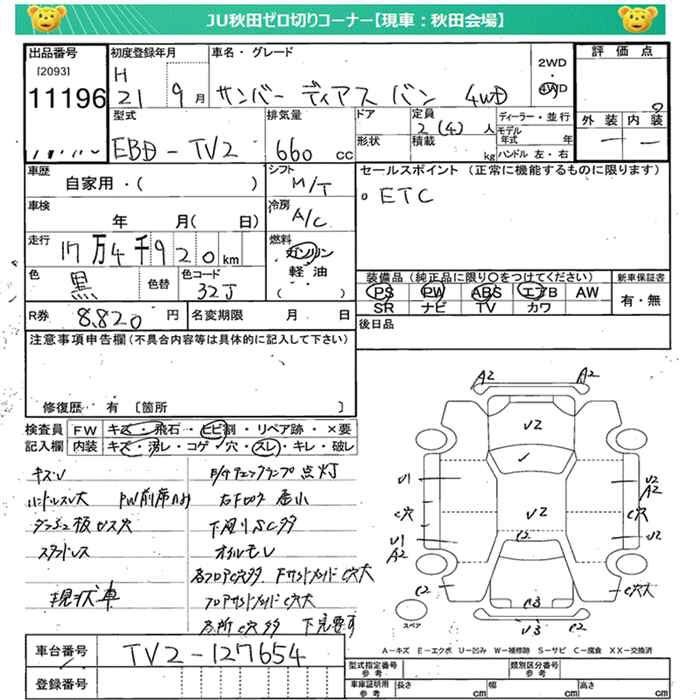 JU秋田ゼロ切りコーナー【現車：秋田会場】
出品番号
[2093]
11196
初度登録年月
H
21 9月
車名・グレード
サンバー ディアス バン 4WD
2WD
・
4WD
評価点
外装 内装
型式
EBD-TV2
排気量
660 cc
ドア
形状
定員
2(4)人
積載
kg
ディーラー・並行
モデル
年式 年
ハンドル 左・右
車歴
自家用・( )
シフト
M/T
セールスポイント (正常に機能するものに限ります)
○ ETC
車検
年 月( 日)
冷房
A/C
走行
17万4千920km
燃料
ガソリン
軽・油
( )
色
黒
色替
色コード
32J
装備品 (純正品に限り○をつけてください)
PS PW ABS エアB AW
SR ナビ TV カワ
新車保証書
有・無
R券 8,820円
名変期限 月 日
後日品
注意事項申告欄(不具合内容等は具体的に記入して下さい)
修復歴 有 [箇所 ]
検査員
記入欄
FW キズ・飛石・ヒビ割・リペア跡・×要
内装 キズ・汚レ・コゲ・穴・スレ・キレ・破レ
キズU
E/Gチェックランプ点灯
ハンドルスレ大
ダッシュ板ビス穴
下廻りSC多
スタッドレス
オイルモレ
現状車
車台番号 TV2-127654
登録番号
A2 A2
U2
U1
U2
A2
C穴
U2
C穴
U1
A2
C2
U2
C2
C穴大
C3
U3
C2
スペア
A－キズ E－エクボ U－凹み W－補修跡 S－サビ C－腐食 XX－交換済
型式指定番号
参考
類別区分番号
参考
車庫証明用
参考
長さ cm 幅 cm 高さ cm